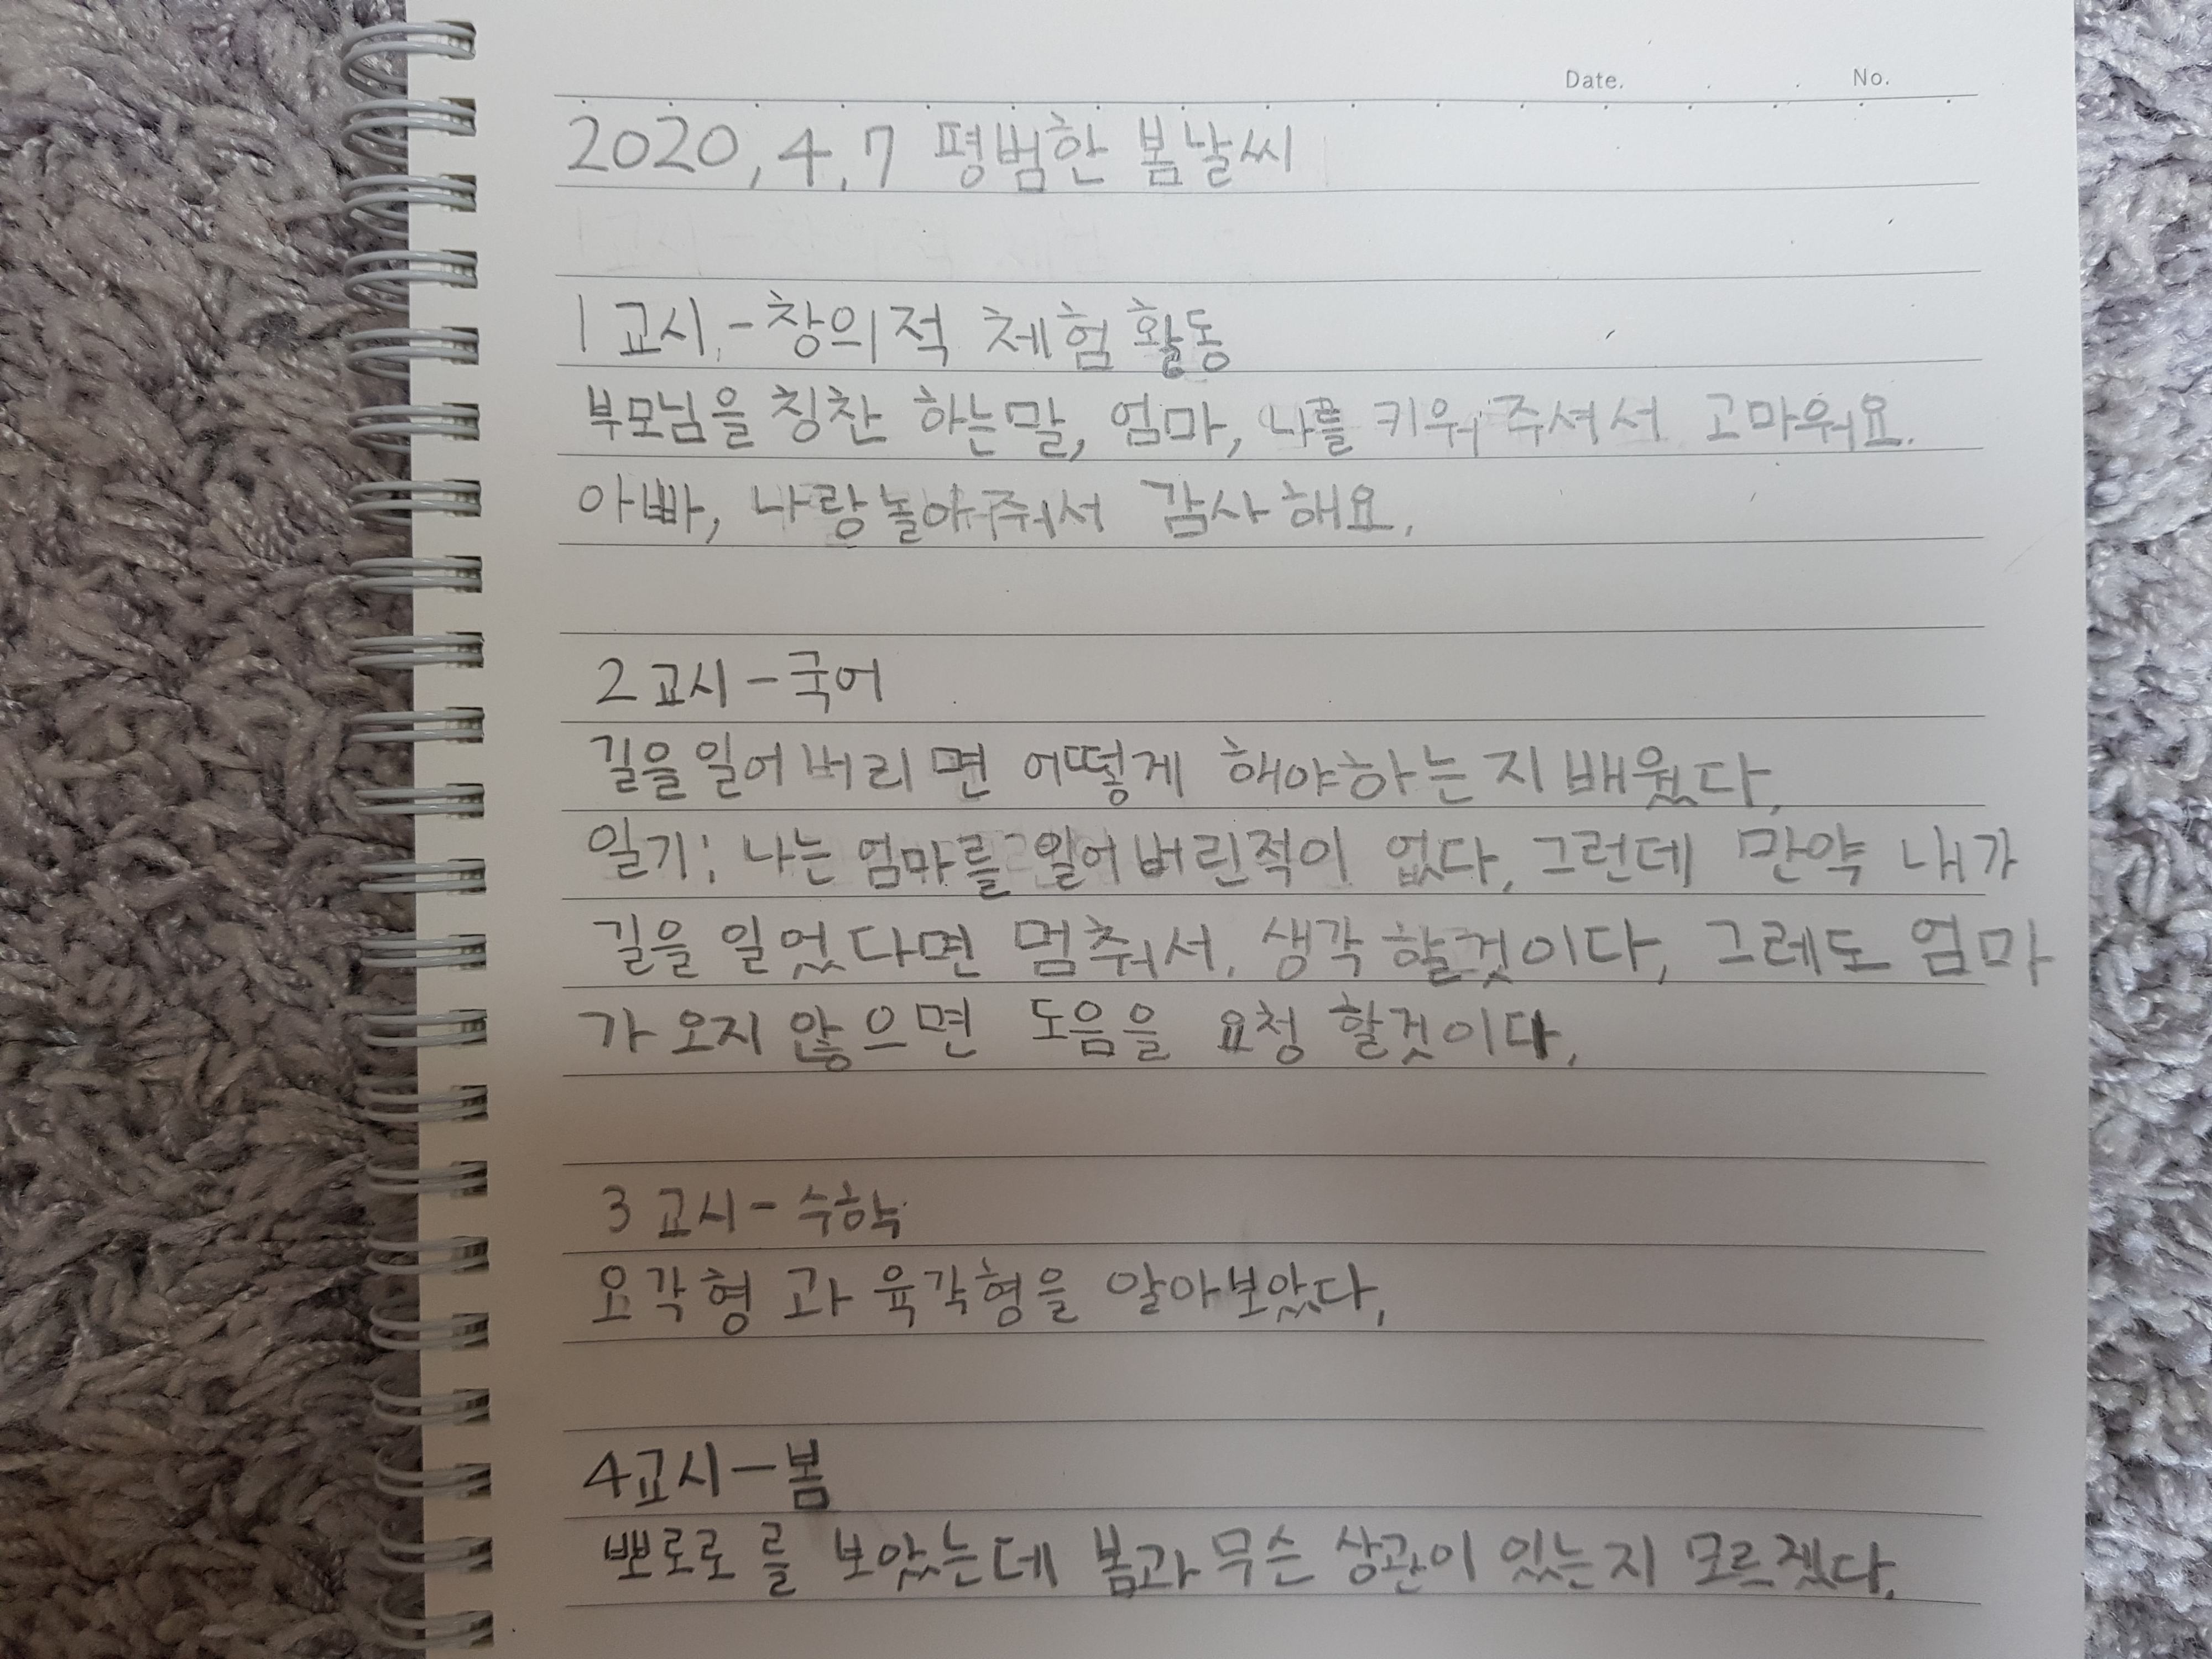 Date. . . No.
2020, 4, 7 평범한 봄날씨
1교시.-창의적 체험 활동
부모님을 칭찬 하는말, 엄마, 나를 키워 주셔서 고마워요.
아빠, 나랑놀아주워서 감사해요.
2교시-국어
길을일어버리면 어떻게 해야하는지배웠다,
일기: 나는 엄마를 일어버린적이 없다, 그런데 만약 내가
길을 일었다면 멈춰서, 생각 할것이다, 그레도 엄마
가 오지 않으면 도음을 요청 할것이다,
3교시- 수학
오각형 과 육각형을 알아보았다,
4교시-봄
뽀로로를 보았는데 봄과 무슨 상관이 있는지 모르겠다,